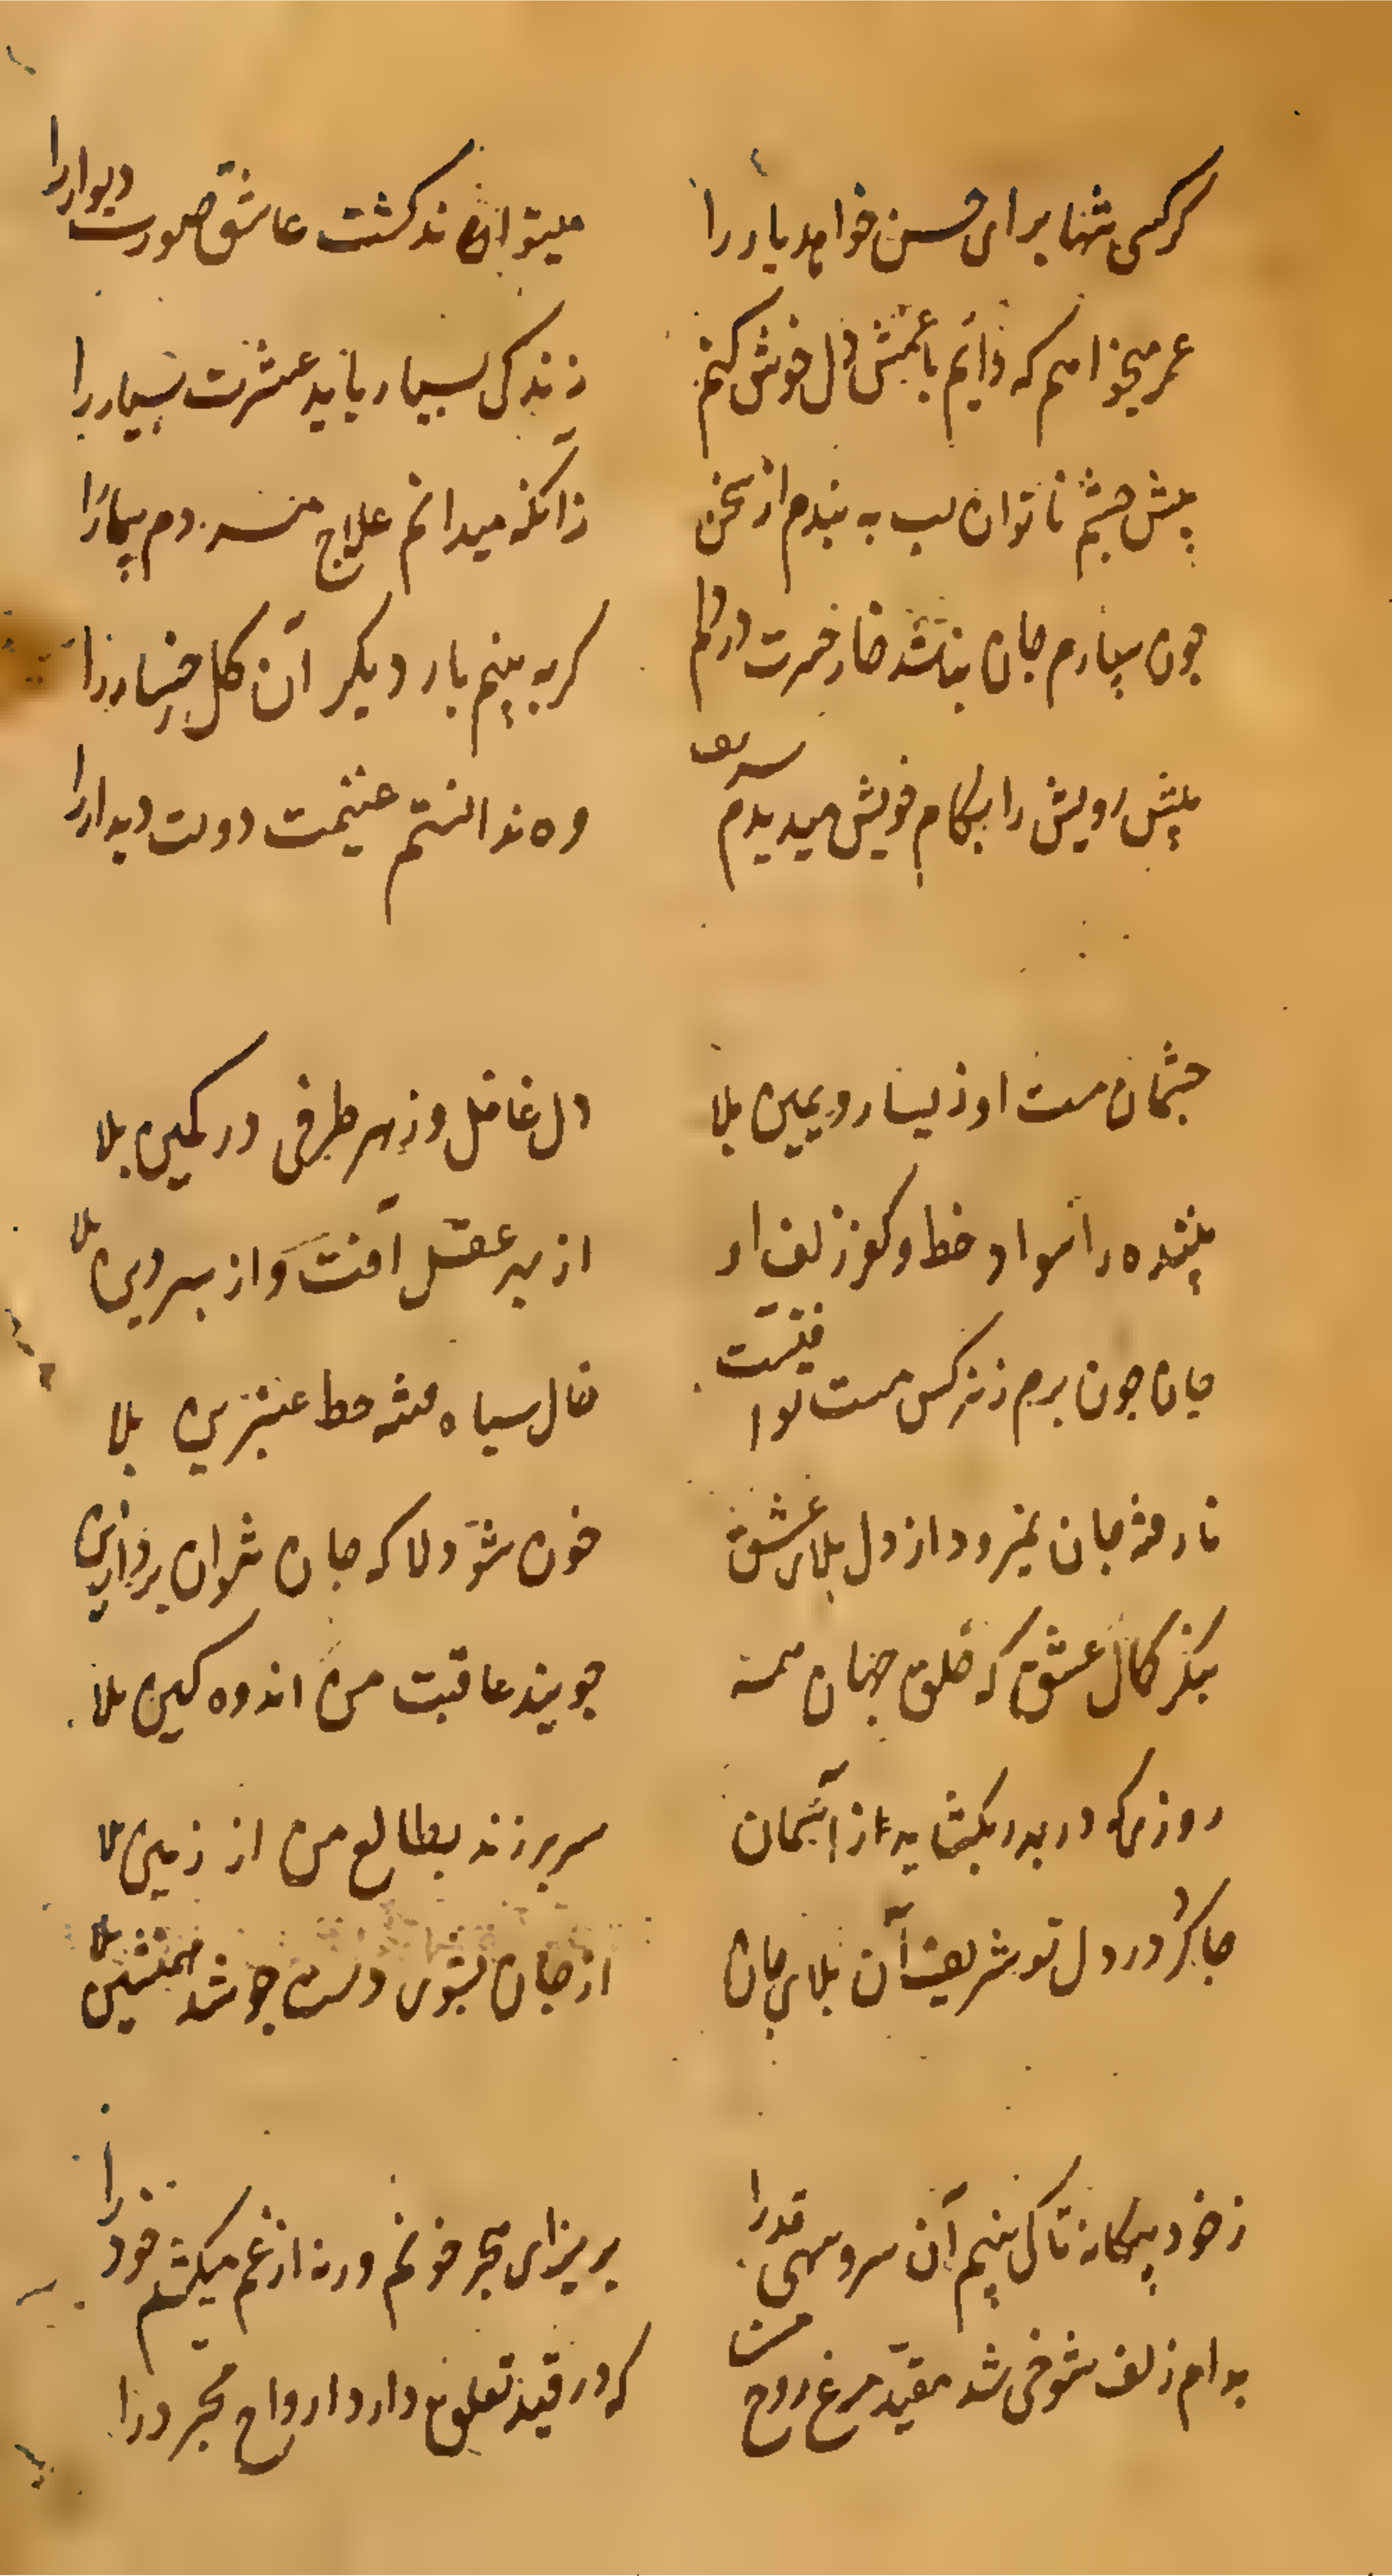 گر کسی تنها برای حسن خواهد یار را
میتواند گشت عاشق صورت دیوار را
عمر میخواهم که دایم با غمش دل خوش کنم
زندگی بسیار باید عشرت بسیار را
پیش چشم ناتوان لب به بندم از سخن
زانکه میدانم علاج مردم بیمار را
چون سپارم جان نباشد خار حسرت در دلم
گر به بینم بار دیگر آن گل رخسار را
پیش رویش را بکام خویش میدیدم شریف
وه ندانستم غنیمت دولت دیدار را
چشمان مست او ز یسار و یمین بلا
دل غافل و ز هر طرفی در کمین بلا
سواد خط و کفر زلف او
از بهر عقل آفت و از بهر دین بلا
جان چون برم ز نرگس مست تو فتنست
خال سیاه فتنه خط عنبرین بلا
نا رفته جان نمیرود از دل بلای عشق
خون شو دلا که جان نتوان برد ازین
بنگر کمال عشق که خلق جهان همه
جویند عافیت من اندوه گین بلا
روزی که در بدر بگشاید از آسمان
سر بر زند بطالع من از زمین بلا
جا کرد در دل تو شریف آن بلای جان
از جان بشوی دست چو شد همنشین بلا
ز خود بیگانه تا کی بینم آن سرو سهی قد را
بریز ای هجر خونم ورنه از غم میکشم خود را
بدام زلف شوخی شد مقید مرغ روح من
که در قید تعلق دارد ارواح مجرد را